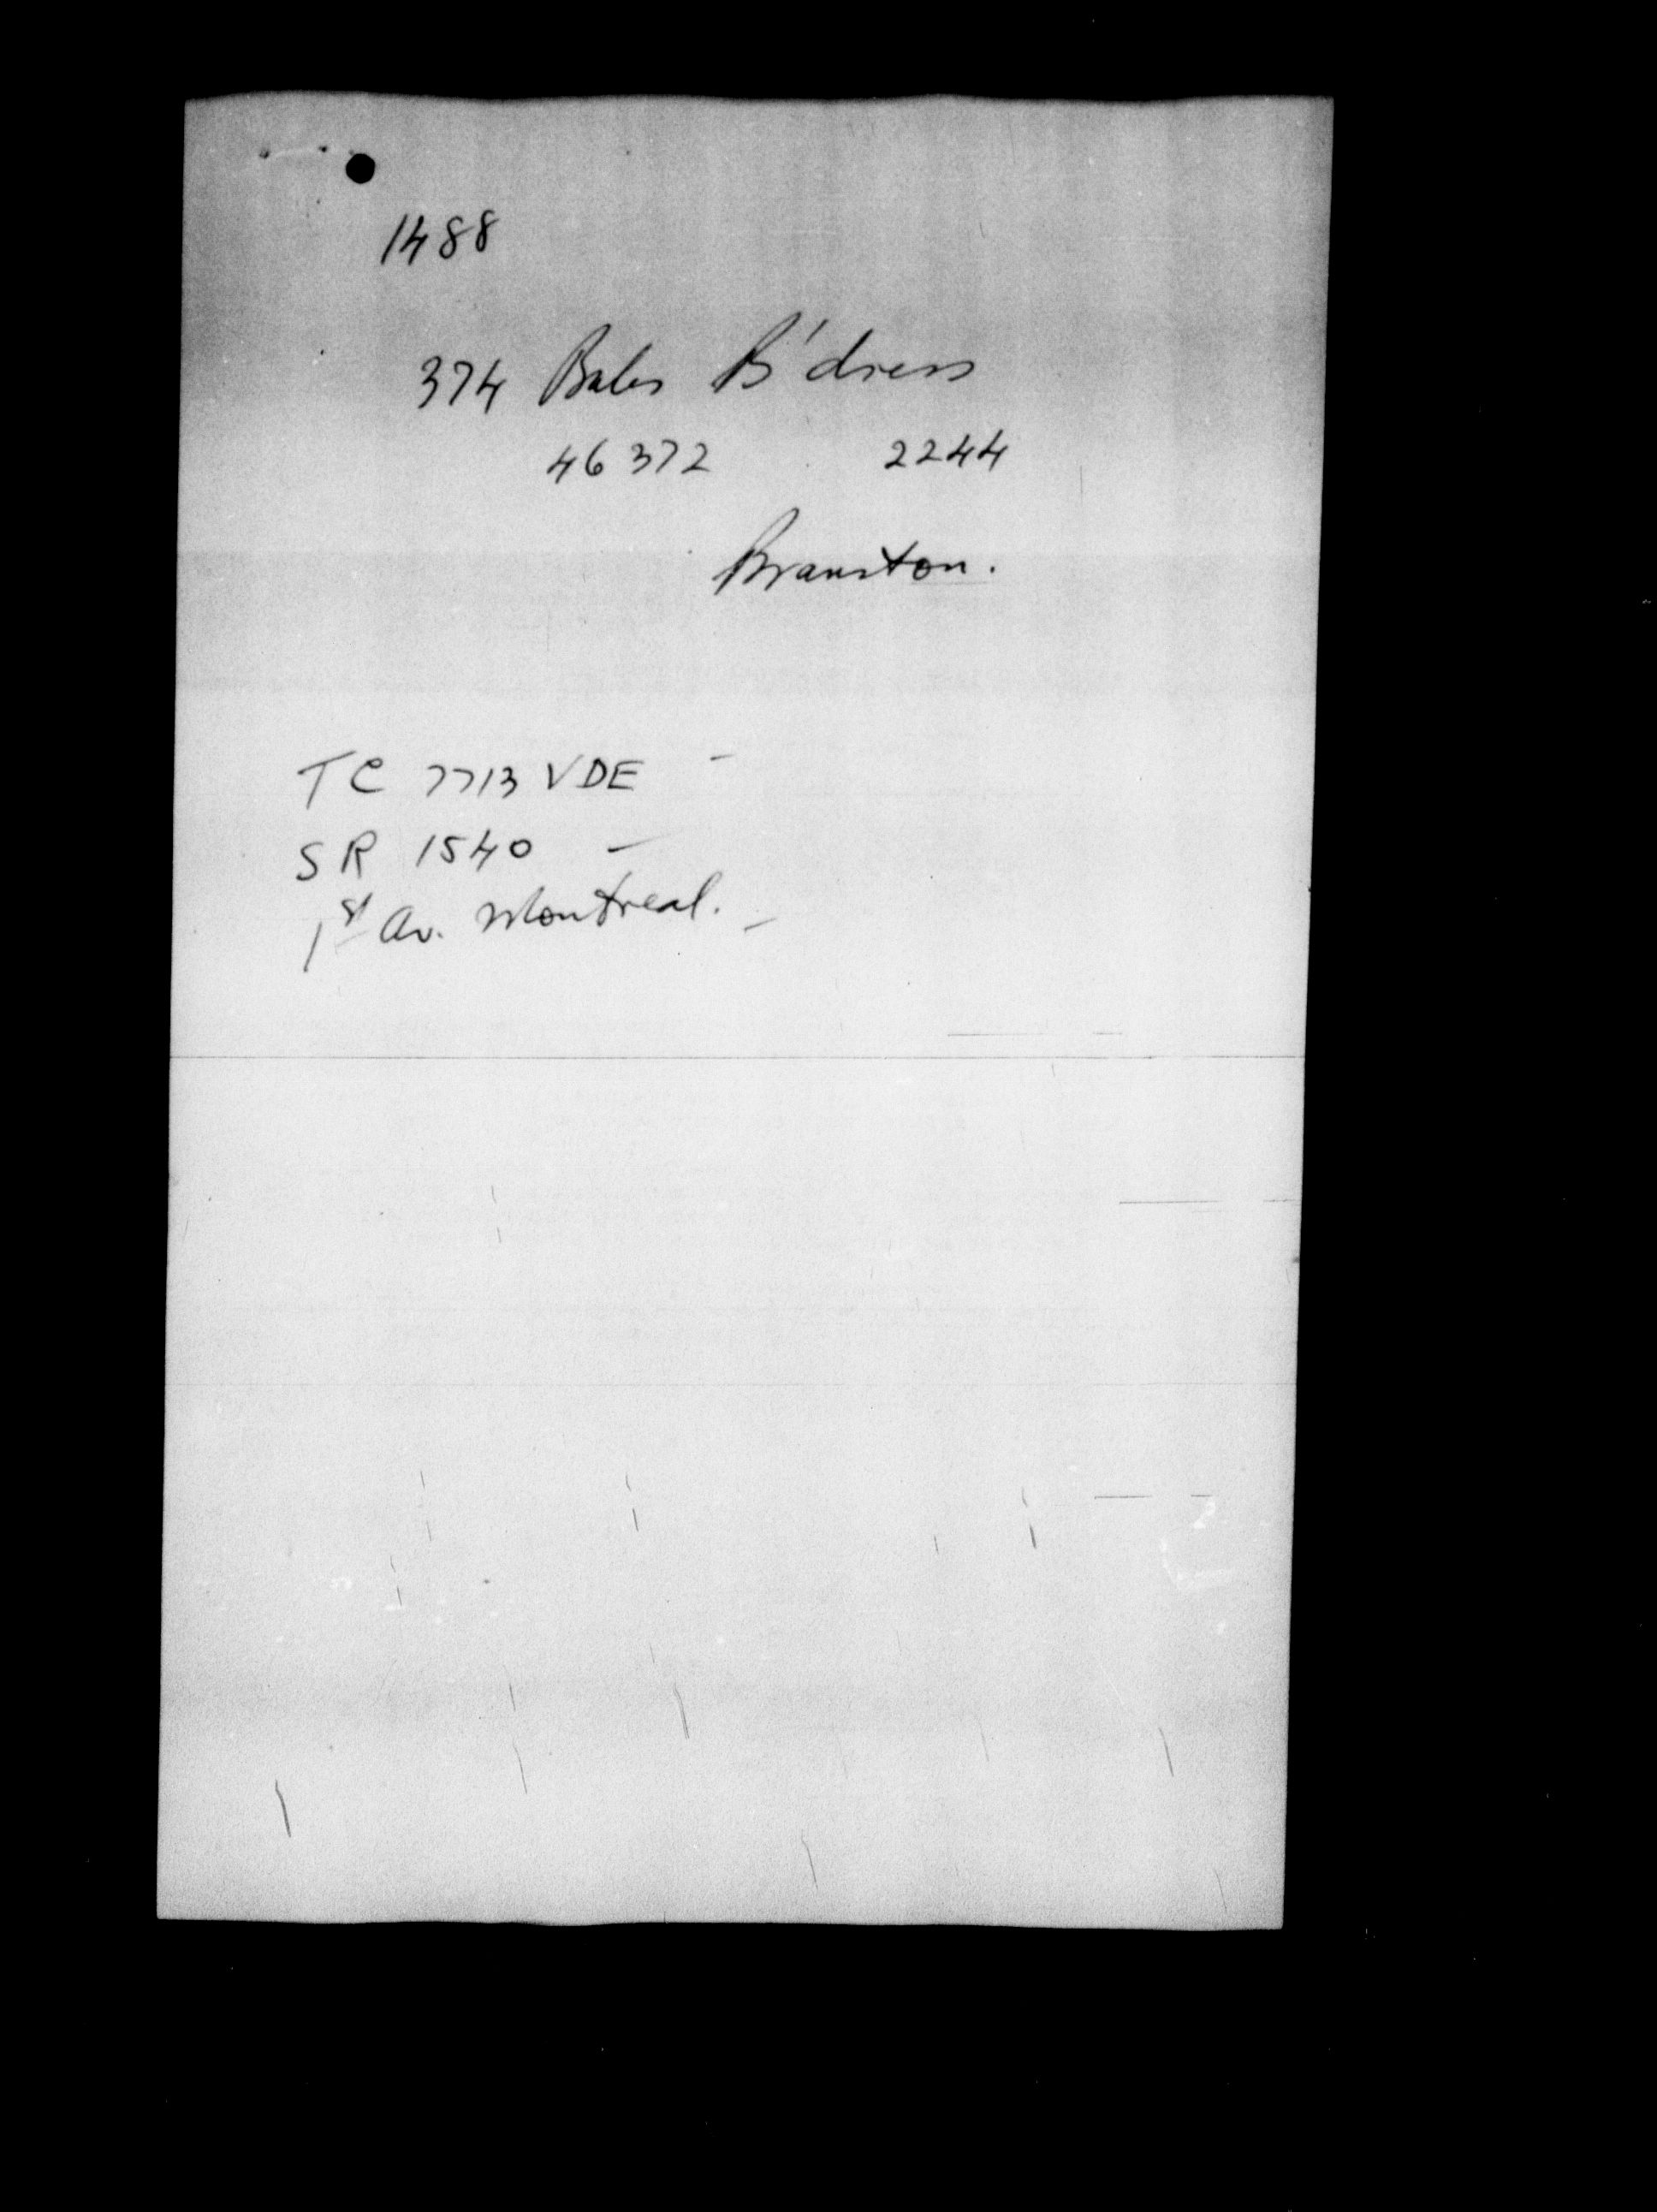 1488
374 Bales B'dress
46372 2244
Branston.
TC 7713 VDE -
SR 1540 -
1st Av. Montreal. -